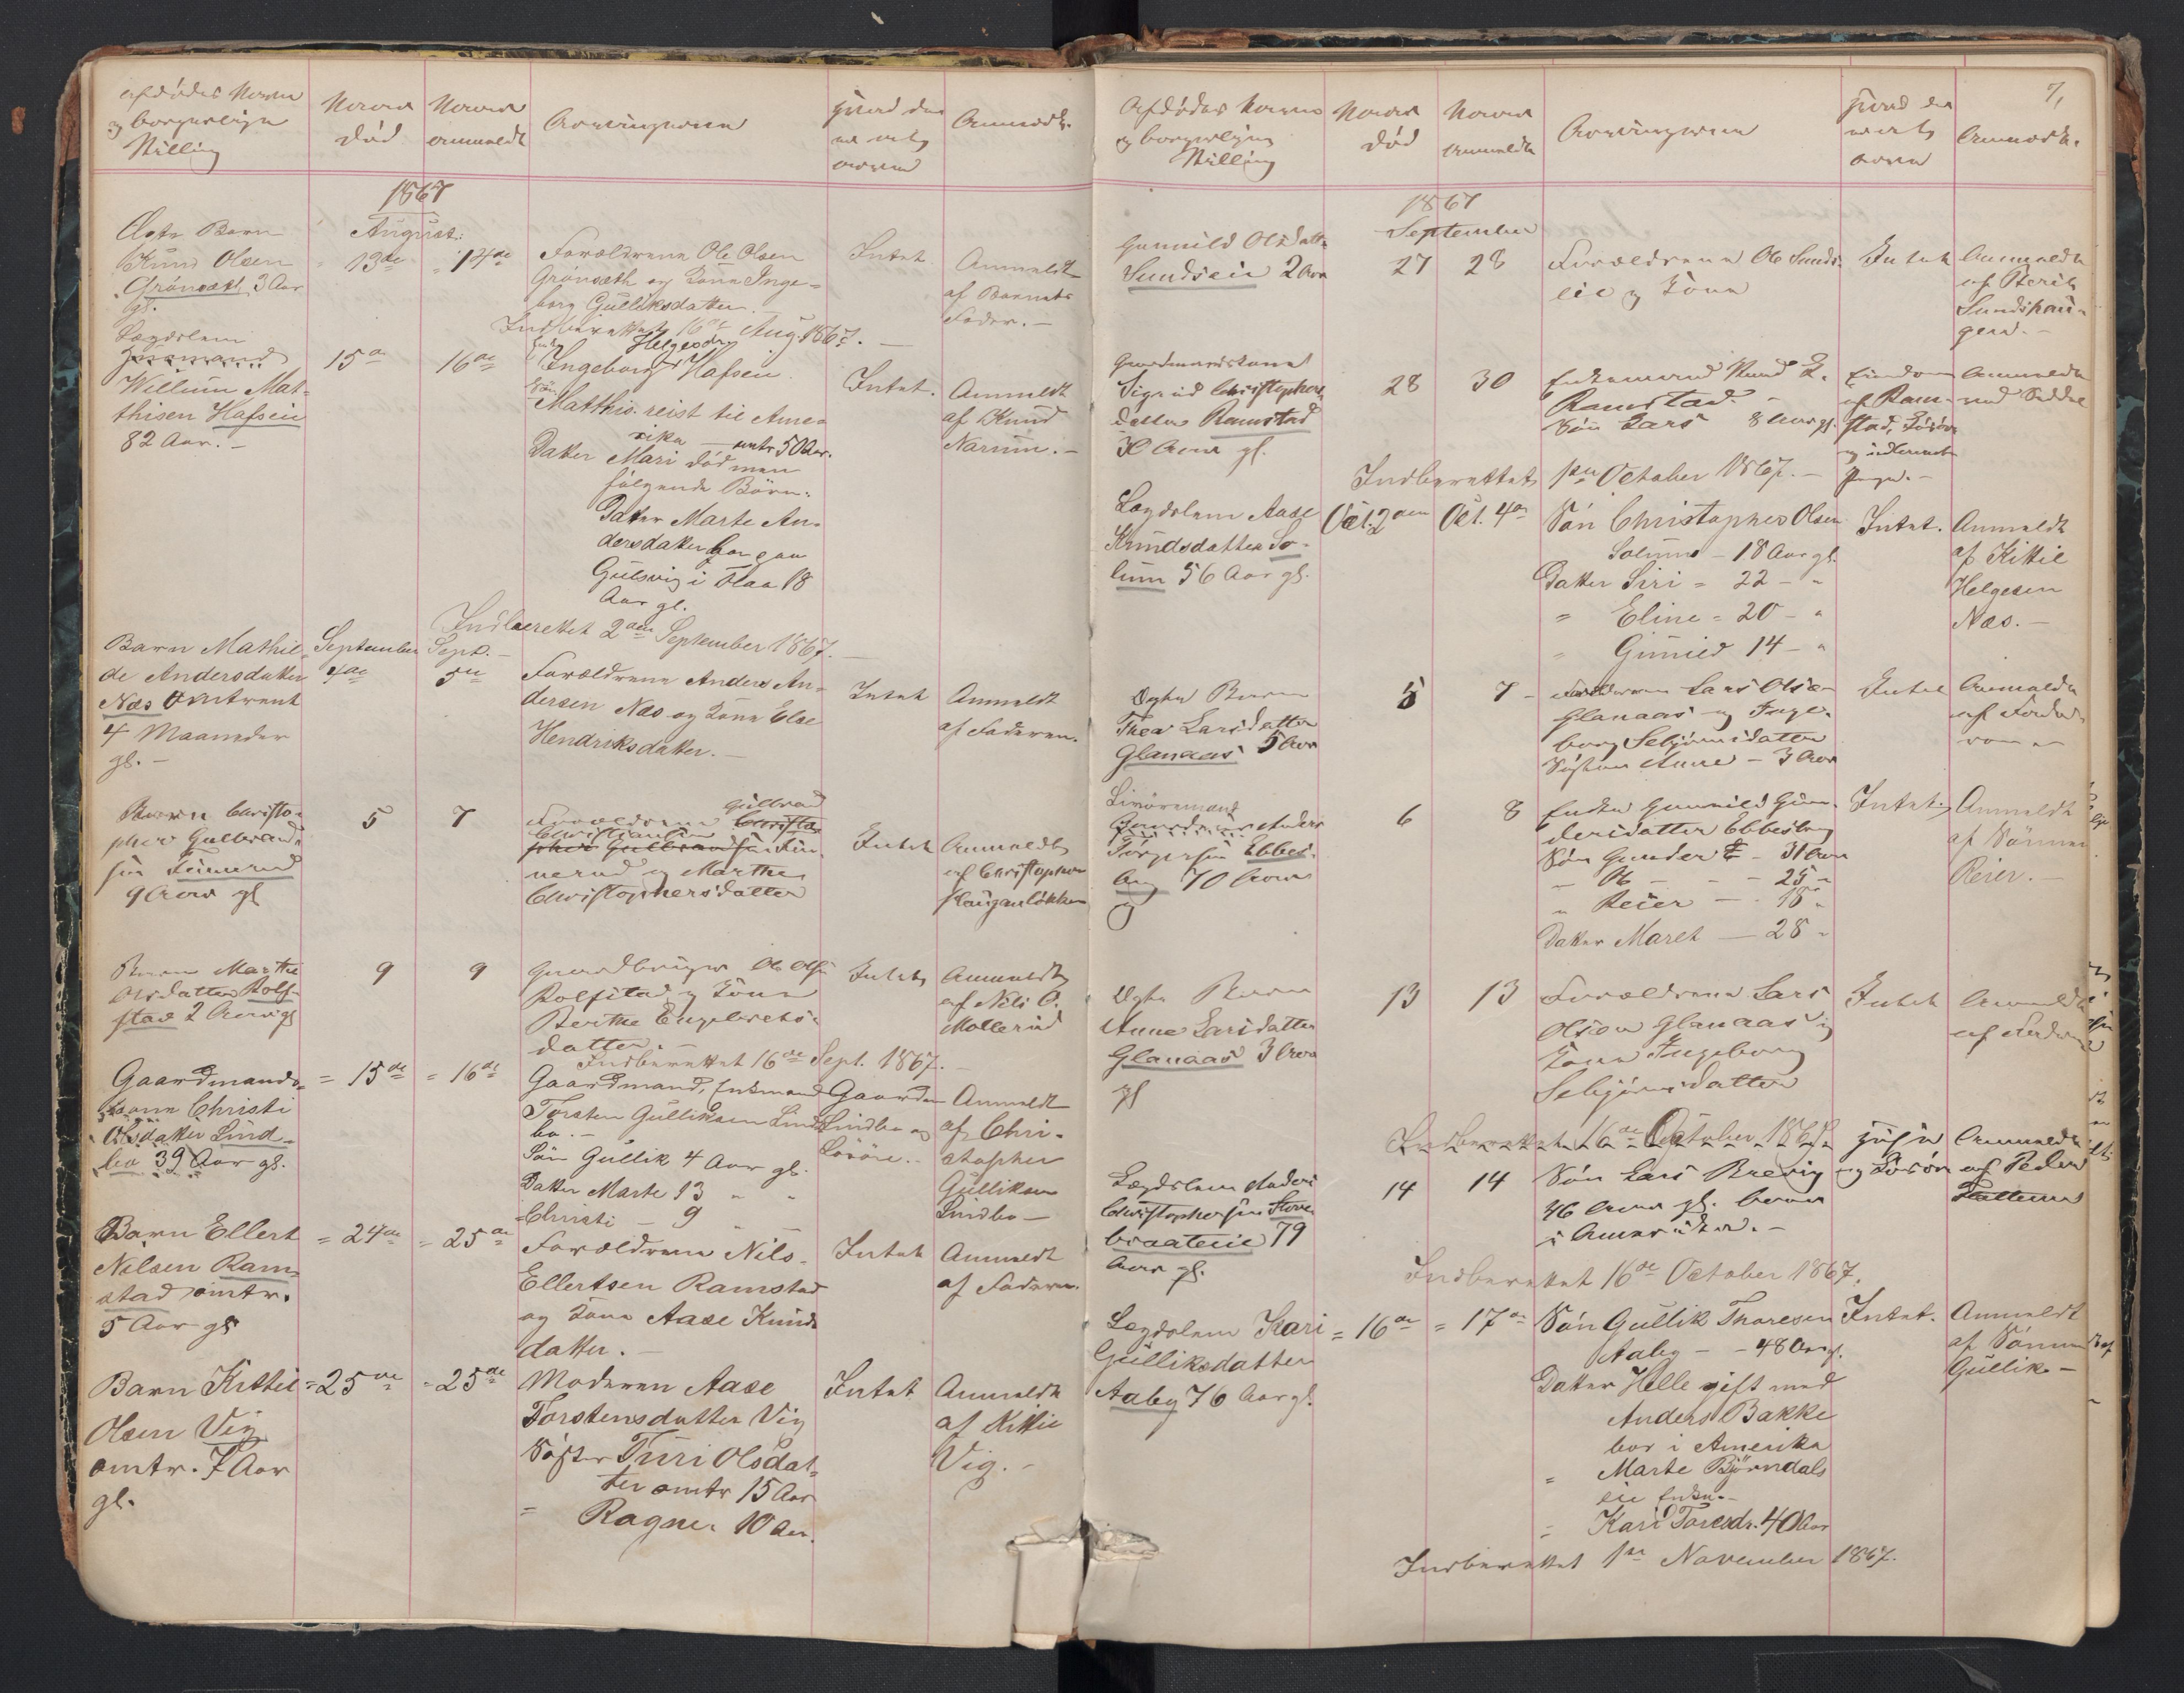 afdødes Navn
og borgerlige
Stilling
Naar
død
Naar
anmeldt
Arvingerne
hvad der
er at
arve
Anmærk.
1867
August.
Ægte Barn
Knud Olsen
Grönsæth, 3 Aar
gl.
13de
14de
Forældrene Ole Olsen
Grönsæth og Kone Inge-
borg Gulliksdatter.
Intet
Anmeldt
af Barnets
Fader.-
Indberettet 16de Aug. 1867.
Lægdslem
Huusmand
Willum Mat-
thisen Hafseie
82 Aar.-
15de
16de
Enke Helgesdr.
Ingeborg Hafseie
Sön
Matthis. reist til Ame-
rika - omtr 50 Aar.
Datter Mari død men
følgende Börn:
Datter Marte An-
dersdatter bor paa
Gulsvig i Flaa 18
Aar gl.
Intet.
Anmeldt
af Knud
Narum.-
Indberettet 2den September 1867.
Barn Mathil-
de Andersdatter
Næs omtrent
4 Maaneder
gl.-
September
4de
Sept.
5te
Forældrene Anders An-
dersen Næs og Kone Else
Hendriksdatter.-
Intet
Anmeldt
af Faderen.
Barn Christo-
pher Gulbrand-
sen Finnerud
9 Aar gl
5
7
Forældrene Christo- Gulbrand
pher Gulbrandsen Christiansen Fin-
nerud og Marthe
Christophersdatter
Intet
Anmeldt
af Christopher
Haugenløkken
Barn Marthe
Olsdatter Rolf-
stad 2 Aar gl
9
9
Gaardbruger Ole Olsen
Rolfstad og Kone
Berthe Engebrets-
datter.-
Intet
Anmeldt
af Nils O.
Mollerud
Indberettet 16de Sept. 1867.
Gaardmands-
kone Christi
Olsdatter Lind-
bo 39 Aar gl.
= 15de
= 16de
Gaardmand, Enkemand
Torsten Gulliksen Lind-
bo.-
Sön Gullik 4 Aar gl.
Datter Marte 13 " "
= Christi - 9 " -
Gaarden
Lindbo og
Lösöre.-
Anmeldt
af Chri-
stopher
Gulliksen
Lindbo-
Barn Ellert
Nilsen Ram-
stad omtr.
5 Aar gl
= 24de
= 25de
Forældrene Nils
Ellertsen Ramstad
og Kone Aase Knuds-
datter.-
Intet
Anmeldt
af Faderen.
Barn Kittil
Olsen Vig
omtr. 7 Aar
gl.
= 25de
= 25de
Moderen Aase
Torstensdatter Vig
Söster Turi Olsdat-
ter omtr 15 Aar
= Ragne. 10 Aar.
Intet
Anmeldt
af Kittil
Vig.-
7,
Afdødes Navn
og borgerlige
Stilling
Naar
død
Naar
anmeldt
Arvingerne
hvad der
er at
arve
Anmærk.
1867
September
Gunnild Olsdatter
Sundseie 2 Aar
27
28
Forældrene Ole Sunds-
eie og Kone
Intet
Anmeldt
af Berit
Sundshau-
gen.-
Gaardmandskone
Sigrid Christophers-
datter Ramstad
30 Aar gl.
28
30
Enkemand Knud L.
Ramstad.
Sön Lars 8 Aar gl.
Eiendom
af Ram-
stad, Lösöre
og udestaaende
Penge.-
Anmeldt
ved Seddel
Indberettet 1ste October 1867.-
Lægdslem Aase
Knudsdatter So-
lum 56 Aar gl.
Oct. 2den
Oct. 4de
Sön Christopher Olsen
Solum - 18 Aar gl.
Datter Siri = 22 - "
= Eline = 20 - "
= Gunild 14 - "
Intet.
Anmeldt
af Kittil
Helgesen
Næs.-
Ægte Barn
Thea Larsdatter
Glanaas 5 Aar
5
7
Forældrene Lars Olsen
Glanaas og Inge-
borg Sebjörnsdatter
Söster Anne - 3 Aar
Intet
Anmeldt
af Forældrene
Livöremand
Gaardmand Anders
Torgersen Ebbes-
berg 70 Aar
gl
6
8
Enken Gunnild Gun-
dersdatter Ebbesberg
Sön Gunder E - 31 Aar
- Ole - - - 25 "
" Reier - - 18 "
Datter Maret - 28 "
Intet.
Anmeldt
af Sönnen
Reier.-
Ægte Barn
Anne Larsdatter
Glanaas 3 Aar
gl
13
13
Forældrene Lars
Olsen Glanaas og
Kone Ingeborg
Sebjörnsdatter
Intet
Anmeldt
af Faderen
Indberettet 16de October 1867.
Lægdslem Anders
Christophersen Store-
braateeie 79
Aar gl.
14
14
Sön Lars Brevig
46 Aar gl. boer
i Amerika.-
Huse
og Lösöre
Anmeldt
af Peder
Indberettet 16de October 1867.
Lægdslem Kari
Gulliksdatter
Aaby 76 Aar gl.
= 16de
= 17de
Sön Gullik Thoresen
Aaby - - 48 Aar gl.
Datter Helle gift med
Anders Bakke
bor i Amerika
= Marte Björndals-
eie Enke.-
= Kari Toresdr. 40 Aar
Intet.
Anmeldt
af Sönnen
Gullik-
Indberettet 1ste November 1867.